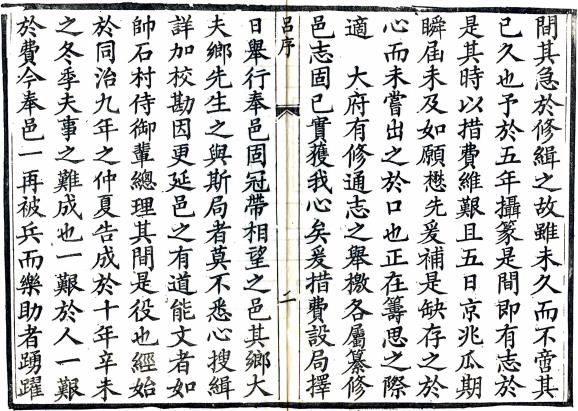 間其急於修緝之故雖未久而不啻其
已久也予於五年攝篆是間即有志於
是其時以措費維艱且五日京兆瓜期
瞬屆未及如願懋先爰補是缺存之於
心而未嘗出之於口也正在籌思之際
適　大府有修通志之舉檄各屬纂修
邑志固已實獲我心矣爰措費設局擇
呂序
二
日舉行奉邑固冠帶相望之邑其鄉大
夫鄉先生之與斯局者莫不悉心搜緝
詳加校勘因更延邑之有道能文者如
帥石村侍御輩總理其間是役也經始
於同治九年之仲夏告成於十年辛未
之冬季夫事之難成也一艱於人一艱
於費今奉邑一再被兵而樂助者踴躍